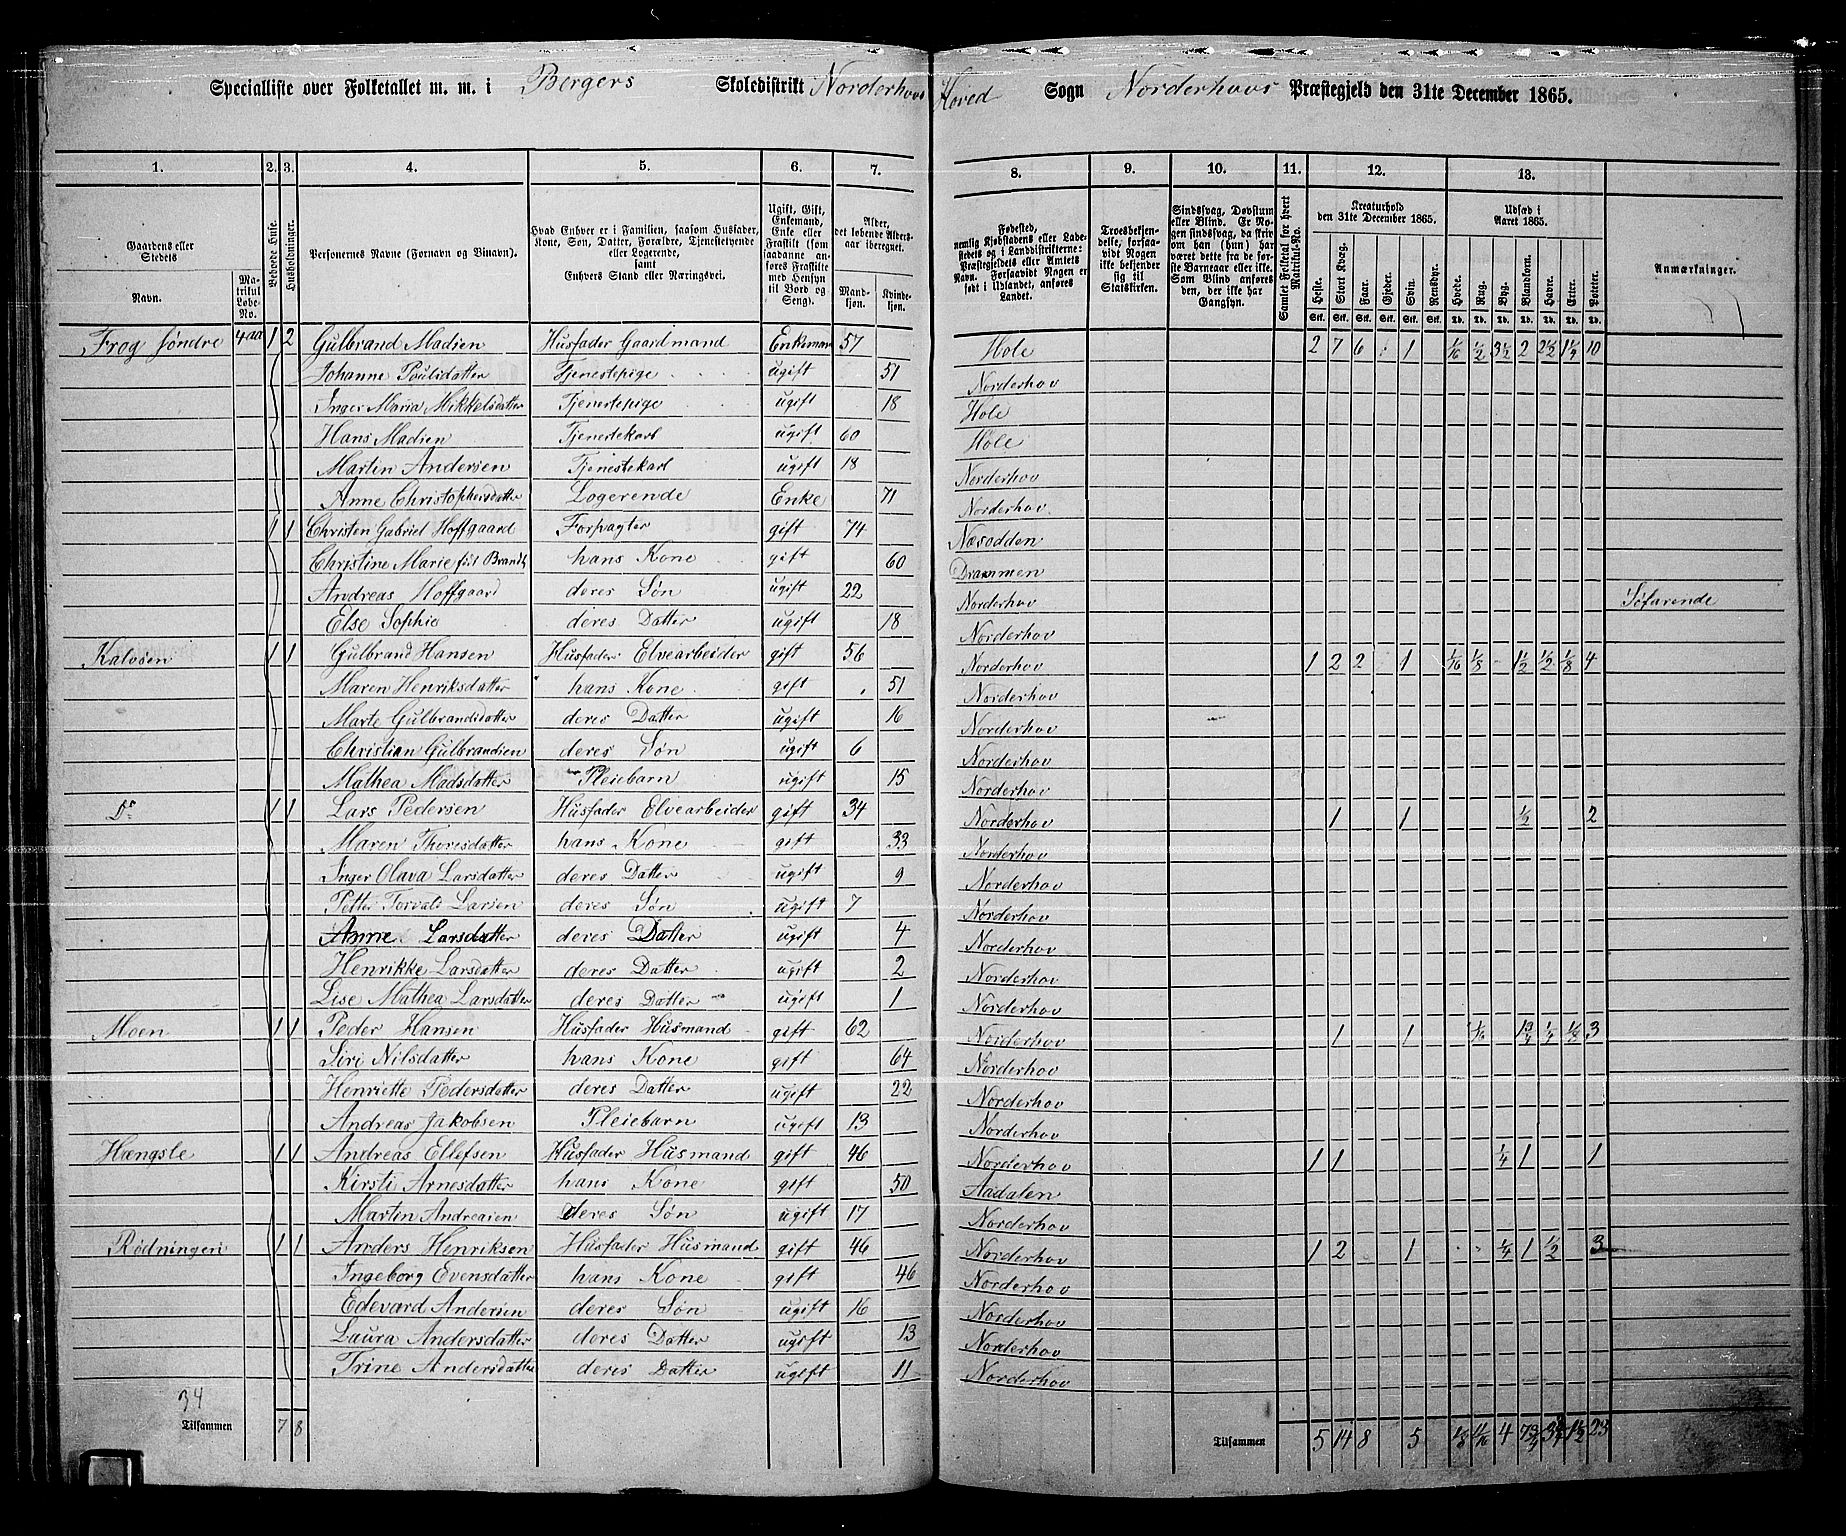 Specialliste over Folketallet m. m. i Bergers Skoledistrikt Norderhovs Hoved Sogn Norderhovs Præstegjeld den 31te December 1865.
1. 2. 3. 4. 5. 6. 7. 8. 9. 10. 11. 12. 13.
Gaardens eller Stedets Navn. Matrikul Løbe-No. Beboede Huse. Husholdninger. Personernes Navne (Fornavn og Binavn). Hvad Enhver er i Familien, saasom Husfader, Kone, Søn, Datter, Forældre, Tjenestetyende eller Logerende, samt Enhvers Stand eller Næringsvei. Ugift, Gift, Enkemand, Enke eller Fraskilt (som saadanne anføres Fraskilte med Hensyn til Bord og Seng). Alder, det løbende Aldersaar iberegnet. Mandkjøn. Kvindekjøn.
Fødested, nemlig Kjøbstadens eller Ladestedets og i Landdistrikterne: Præstegjeldets eller Amtets Navn. Forsaavidt Nogen er født i Udlandet, anføres Landet. Troesbekjendelse, forsaavidt Nogen ikke bekjender sig til Statskirken. Sindssvag, Døvstum eller Blind. Er Nogen sindssvag, da skrives om han (hun) har været dette fra de første Barneaar eller ikke. Som Blind anføres den, der ikke har Gangsyn. Samlet Folketal for hvert Matrikul-No. Kreaturhold den 31te December 1865. Udsæd i Aaret 1865. Anmærkninger.
Heste. Stort Kvæg. Faar. Gjeder. Svin. Rensdyr. Hvede. Rug. Byg. Blandkorn. Havre. Erter. Poteter.
Stk. Stk. Stk. Stk. Stk. Stk. Td. Td. Td. Td. Td. Td. Td.
Frog søndre 4aa 1 2 Gulbrand Madsen Husfader Gaardmand Enkemand 57 Hole 2 7 6 1 1/16 1/2 3 1/2 2 2 1/2 1 1/2 10
Johanne Poulsdatter Tjenestepige ugift 51 Norderhov
Inger Maria Mikkelsdatter Tjenestepige ugift 18 Hole
Hans Madsen Tjenestekarl ugift 60 Hole
Martin Andersen Tjenestekarl ugift 18 Norderhov
Anne Christophersdatter Logerende Enke 71 Norderhov
1 1 Christen Gabriel Hoffgaard Forpagter gift 74 Næsodden
Christine Marie født Brandt hans Kone gift 60 Drammen
Andreas Hoffgaard deres Søn ugift 22 Norderhov Søfarende
Else Sophie deres Datter ugift 18 Norderhov
Kalvøen 1 1 Gulbrand Hansen Husfader Elvearbeider gift 56 Norderhov 1 2 2 1 1/16 1/8 1 1/2 1/2 1/8 4
Maren Henriksdatter hans Kone gift 51 Norderhov
Marte Gulbrandsdatter deres Datter ugift 16 Norderhov
Christian Gulbrandsen deres Søn ugift 6 Norderhov
Mathea Madsdatter Pleiebarn ugift 15 Norderhov
Do 1 1 Lars Pedersen Husfader Elvearbeider gift 34 Norderhov 1 1 1/2 2
Maren Thoresdatter hans Kone gift 33 Norderhov
Inger Olava Larsdatter deres Datter ugift 9 Norderhov
Petter Torvald Larsen deres Søn ugift 7 Norderhov
Anne Larsdatter deres Datter ugift 4 Norderhov
Henrikke Larsdatter deres Datter ugift 2 Norderhov
Lise Mathea Larsdatter deres Datter ugift 1 Norderhov
Moen 1 1 Peder Hansen Husfader Husmand gift 62 Norderhov 1 1 1/16 1 3/4 1/4 1/8 3
Siri Nilsdatter hans Kone gift 64 Norderhov
Henriette Pedersdatter deres Datter ugift 22 Norderhov
Andreas Jakobsen Pleiebarn ugift 13 Norderhov
Hængsle 1 1 Andreas Ellefsen Husfader Husmand gift 46 Norderhov 1 1 1/4 1 1
Kirsti Arnesdatter hans Kone gift 50 Aadalen
Martin Andreasen deres Søn ugift 17 Norderhov
Rødningen 1 1 Anders Henriksen Husfader Husmand gift 46 Norderhov 1 2 1 1/4 1 1/2 3
Ingeborg Evensdatter hans Kone gift 46 Norderhov
Edevard Andersen deres Søn ugift 16 Norderhov
Laura Andersdatter deres Datter ugift 13 Norderhov
Trine Andersdatter deres Datter ugift 11 Norderhov
34
Tilsammen 7 8 Tilsammen 5 14 8 5 1/8 4 7 3/4 3 3/4 23